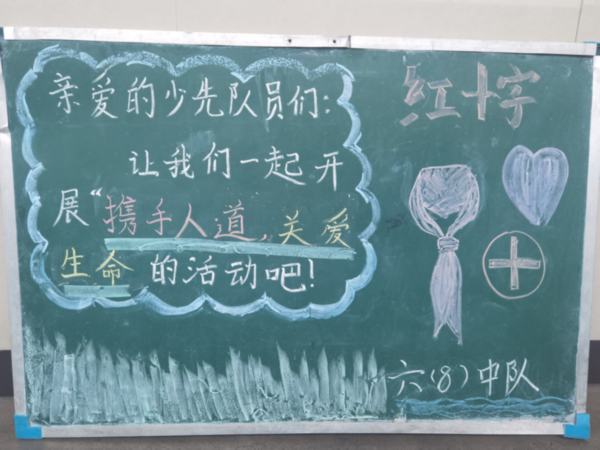 亲爱的少先队员们:
让我们一起开
展“携手人道,关爱
生命的活动吧!
红十字
六(8)中队